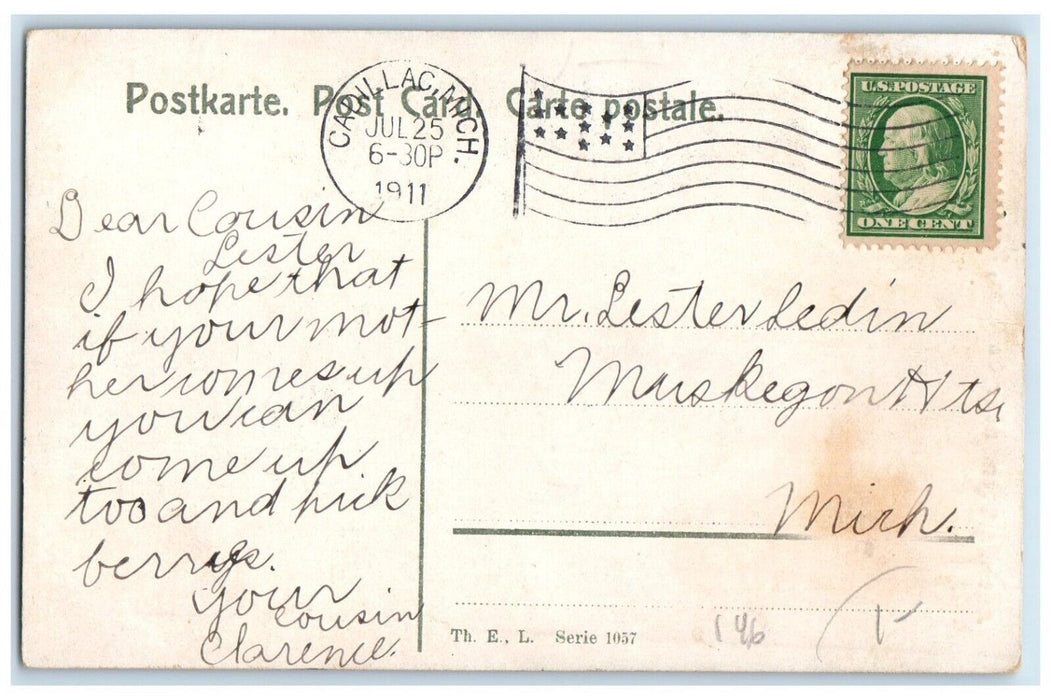 Postkarte. Post Card. Carte postale.
CADILLAC, MICH.
JUL 25
6-30P
1911
U.S. POSTAGE
ONE CENT
Dear Cousin
Lester
I hope that
if your mot-
her comes up
you can
come up
too and pick
berrys.
your
cousin
Clarence.
Mr. Lester Ledin
Muskegon Hts.
Mich.
Th. E., L. Serie 1057
146